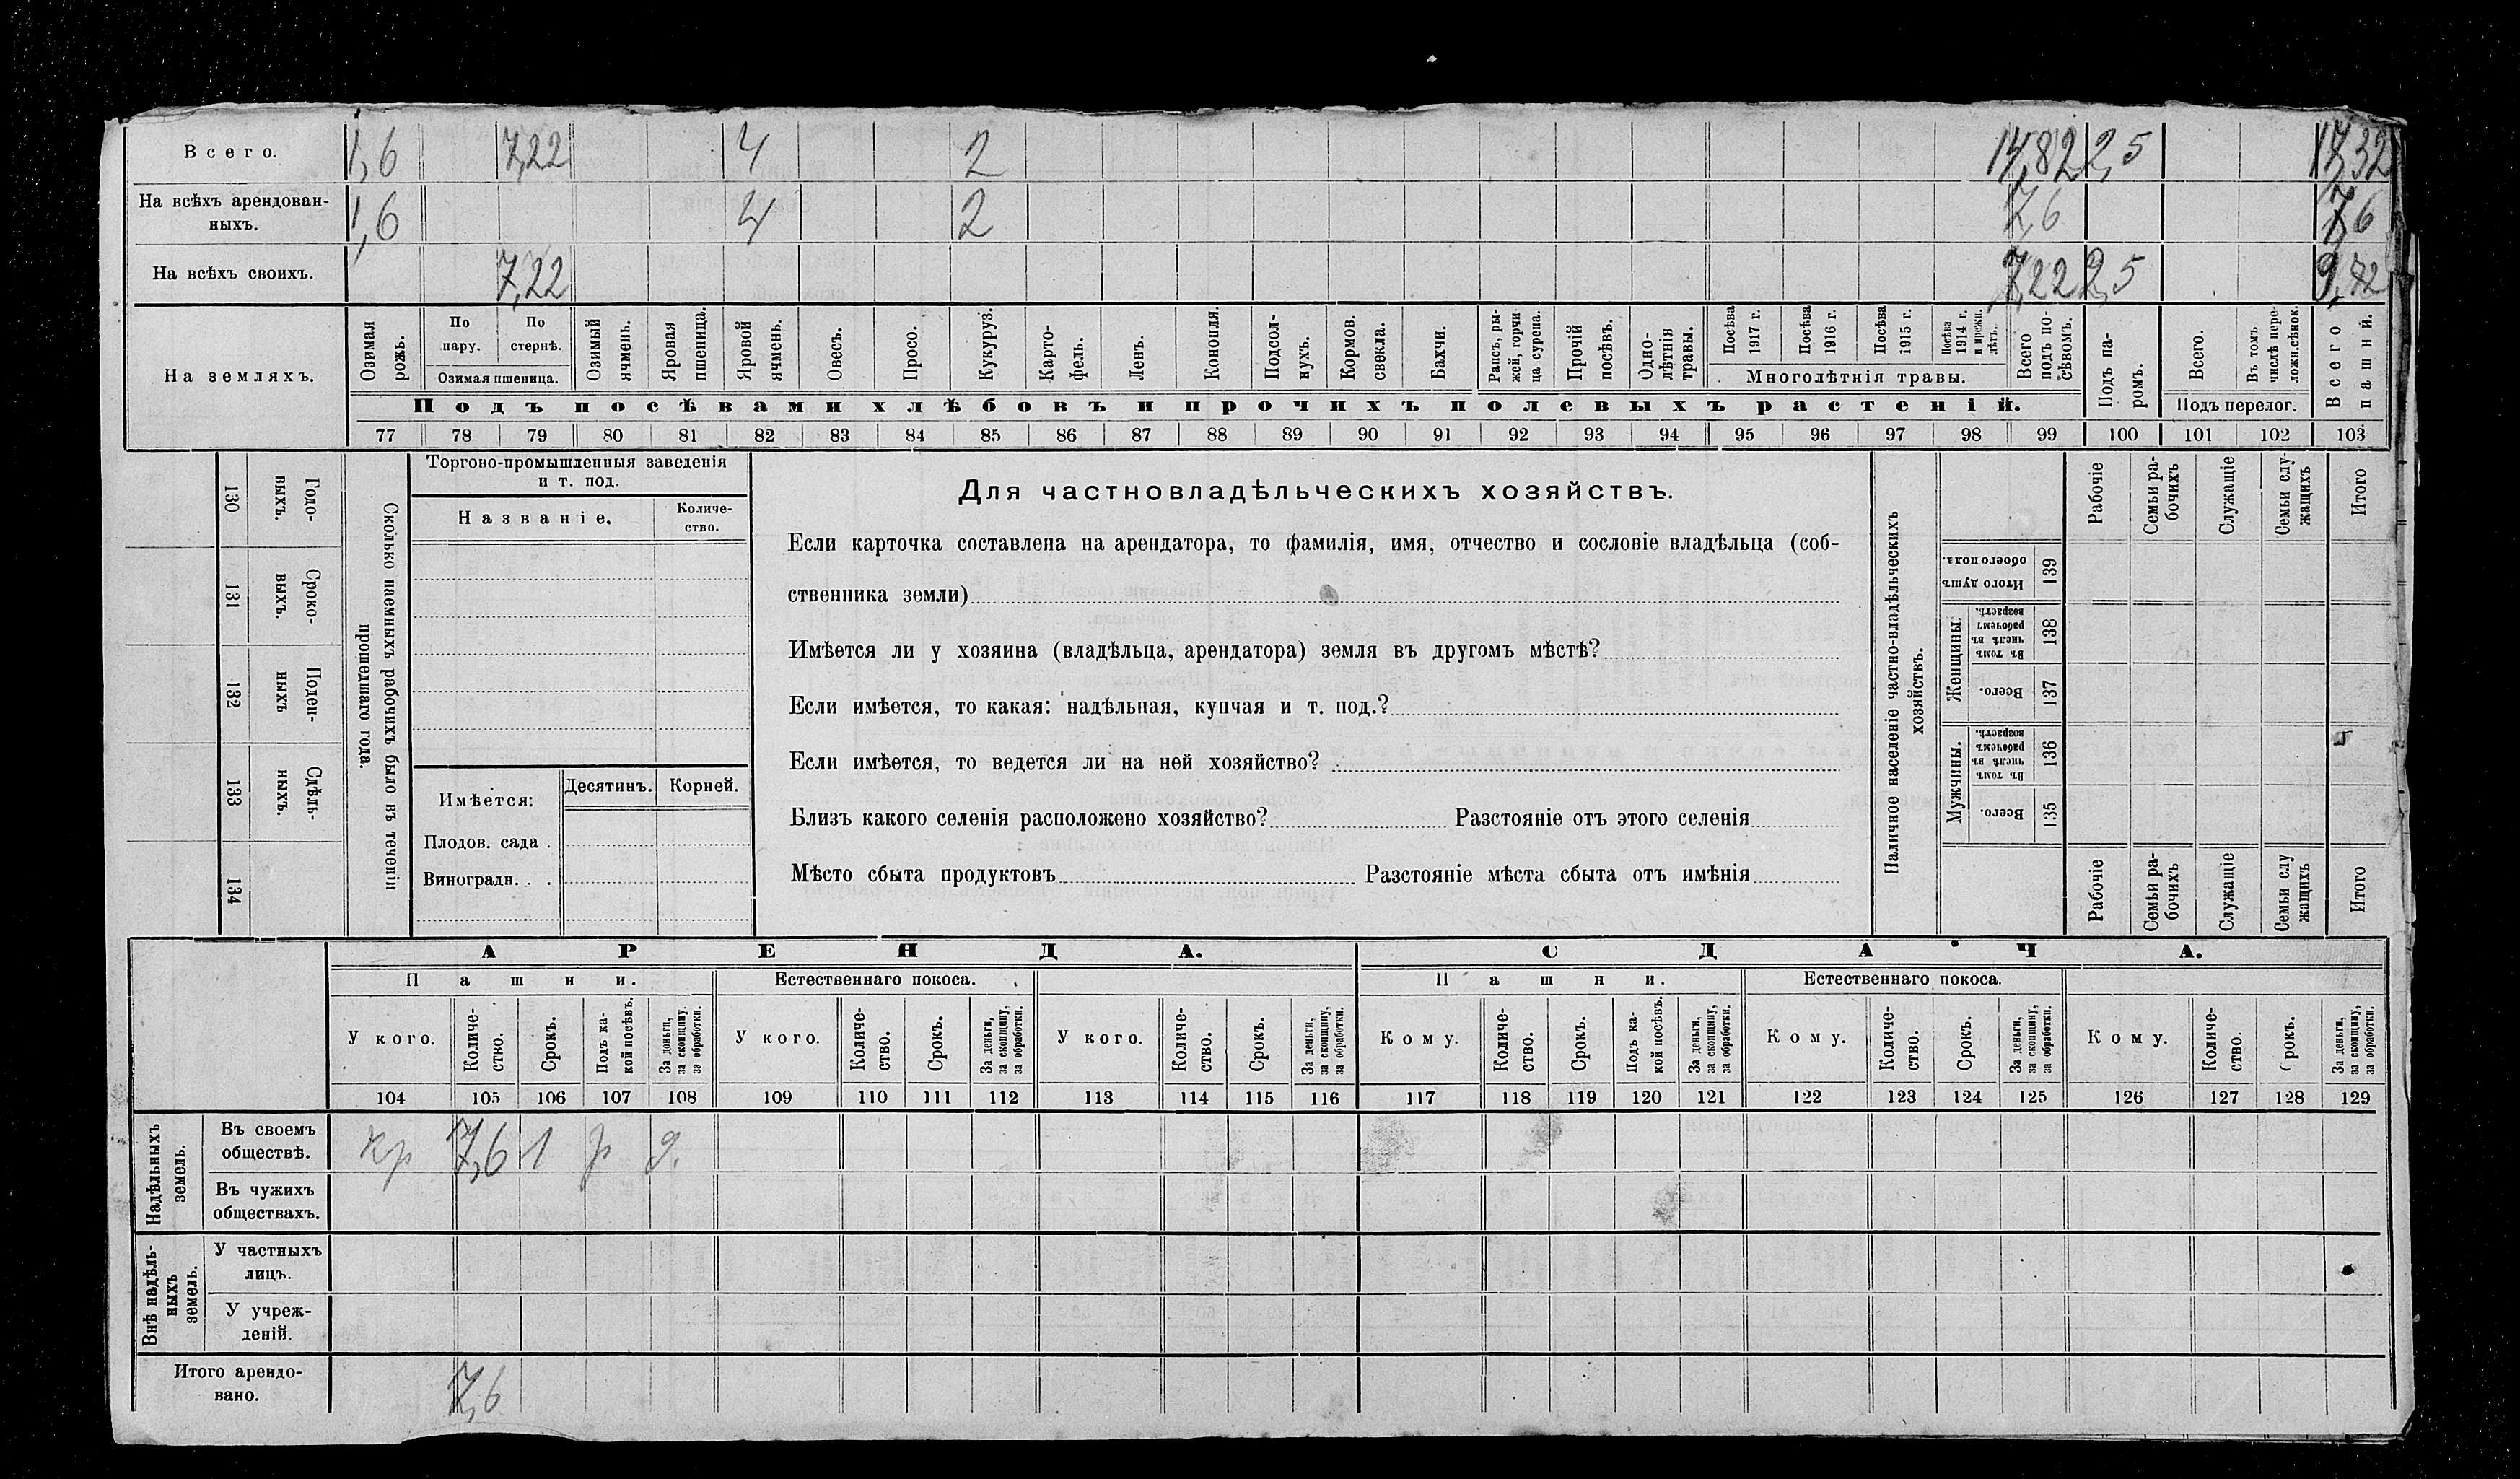 Всего. 1,6 7,22 4 2 14,82 2,5 17,32
На всѣхъ арендован-
ныхъ. 1,6 4 2 7,6 7,6
На всѣхъ своихъ. 7,22 7,22 2,5 9,72
На земляхъ.
Озимая рожь.
По пару.
По стернѣ.
Озимая пшеница.
Озимый ячмень.
Яровая пшеница.
Яровой ячмень.
Овесъ.
Просо.
Кукуруз.
Карто-
фель.
Ленъ.
Конопля.
Подсол-
нухъ.
Кормов. свекла.
Бахчи.
Рапсъ, ры-
жей, горчи
ца сурепа.
Прочій посѣвъ.
Одно-
лѣтнія
травы.
Посѣва 1917 г.
Посѣва 1916 г.
Посѣва 1915 г.
Посѣва 1914 г. и прежн. лѣтъ.
Многолѣтнія травы.
Всего подъ по-
сѣвомъ.
Подъ па-
ромъ.
Всего.
Въ томъ числѣ пере-
ложн.сѣнок.
Подъ перелог.
Всего пашни.
Подъ посѣвами хлѣбовъ и прочихъ полевыхъ растеній.
77 78 79 80 81 82 83 84 85 86 87 88 89 90 91 92 93 94 95 96 97 98 99 100 101 102 103
130 Годо-
выхъ.
131 Сроко-
выхъ.
132 Поден-
ныхъ
133 Сдѣль-
ныхъ.
134
Сколько наемныхъ рабочихъ было въ теченіи
прошедшаго года.
Торгово-промышленныя заведенія
и т. под.
Названіе.
Количе-
ство.
Имѣется:
Десятинъ. Корней.
Плодов. сада .
Виноградн. . .
Для частновладѣльческихъ хозяйствъ.
Если карточка составлена на арендатора, то фамилія, имя, отчество и сословіе владѣльца (соб-
ственника земли)
Имѣется ли у хозяина (владѣльца, арендатора) земля въ другомъ мѣстѣ?
Если имѣется, то какая: надѣльная, купчая и т. под.?
Если имѣется, то ведется ли на ней хозяйство?
Близъ какого селенія расположено хозяйство? Разстояніе отъ этого селенія
Мѣсто сбыта продуктовъ Разстояніе мѣста сбыта отъ имѣнія
Наличное населеніе частно-владѣльческихъ
хозяйствъ.
Рабочіе
Семьи ра-
бочихъ
Служащіе
Семьи слу-
жащихъ
Итого
Итого душъ обоего пола. 139
Женщины.
Въ томъ числѣ въ рабочемъ возрастѣ. 138
Всего. 137
Мужчины.
Въ томъ числѣ въ рабочемъ возрастѣ. 136
Всего. 135
Рабочіе
Семьи ра-
бочихъ
Служащіе
Семьи слу
жащихъ
Итого
АРЕНДА. СДАЧА.
Пашни. Естественнаго покоса. Пашни. Естественнаго покоса.
У кого.
Количе-
ство.
Срокъ.
Подъ ка-
кой посѣвъ.
За деньги,
за скопщину,
за обработки.
У кого.
Количе-
ство.
Срокъ.
За деньги,
за скопщину,
за обработки.
У кого.
Количе-
ство.
Срокъ.
За деньги,
за скопщину,
за обработки.
Кому.
Количе-
ство.
Срокъ.
Подъ ка-
кой посѣвъ.
За деньги,
за скопщину,
за обработки.
Кому.
Количе-
ство.
Срокъ.
За деньги,
за скопщину,
за обработки.
Кому.
Количе-
ство.
Срокъ.
За деньги,
за скопщину,
за обработки.
104 105 106 107 108 109 110 111 112 113 114 115 116 117 118 119 120 121 122 123 124 125 126 127 128 129
Надѣльныхъ
земель.
Въ своемъ
обществѣ. кр 7,6 1 р д.
Въ чужихъ
обществахъ.
Внѣ надѣль-
ныхъ
земель.
У частныхъ
лицъ.
У учреж-
деній.
Итого арендо-
вано. 7,6